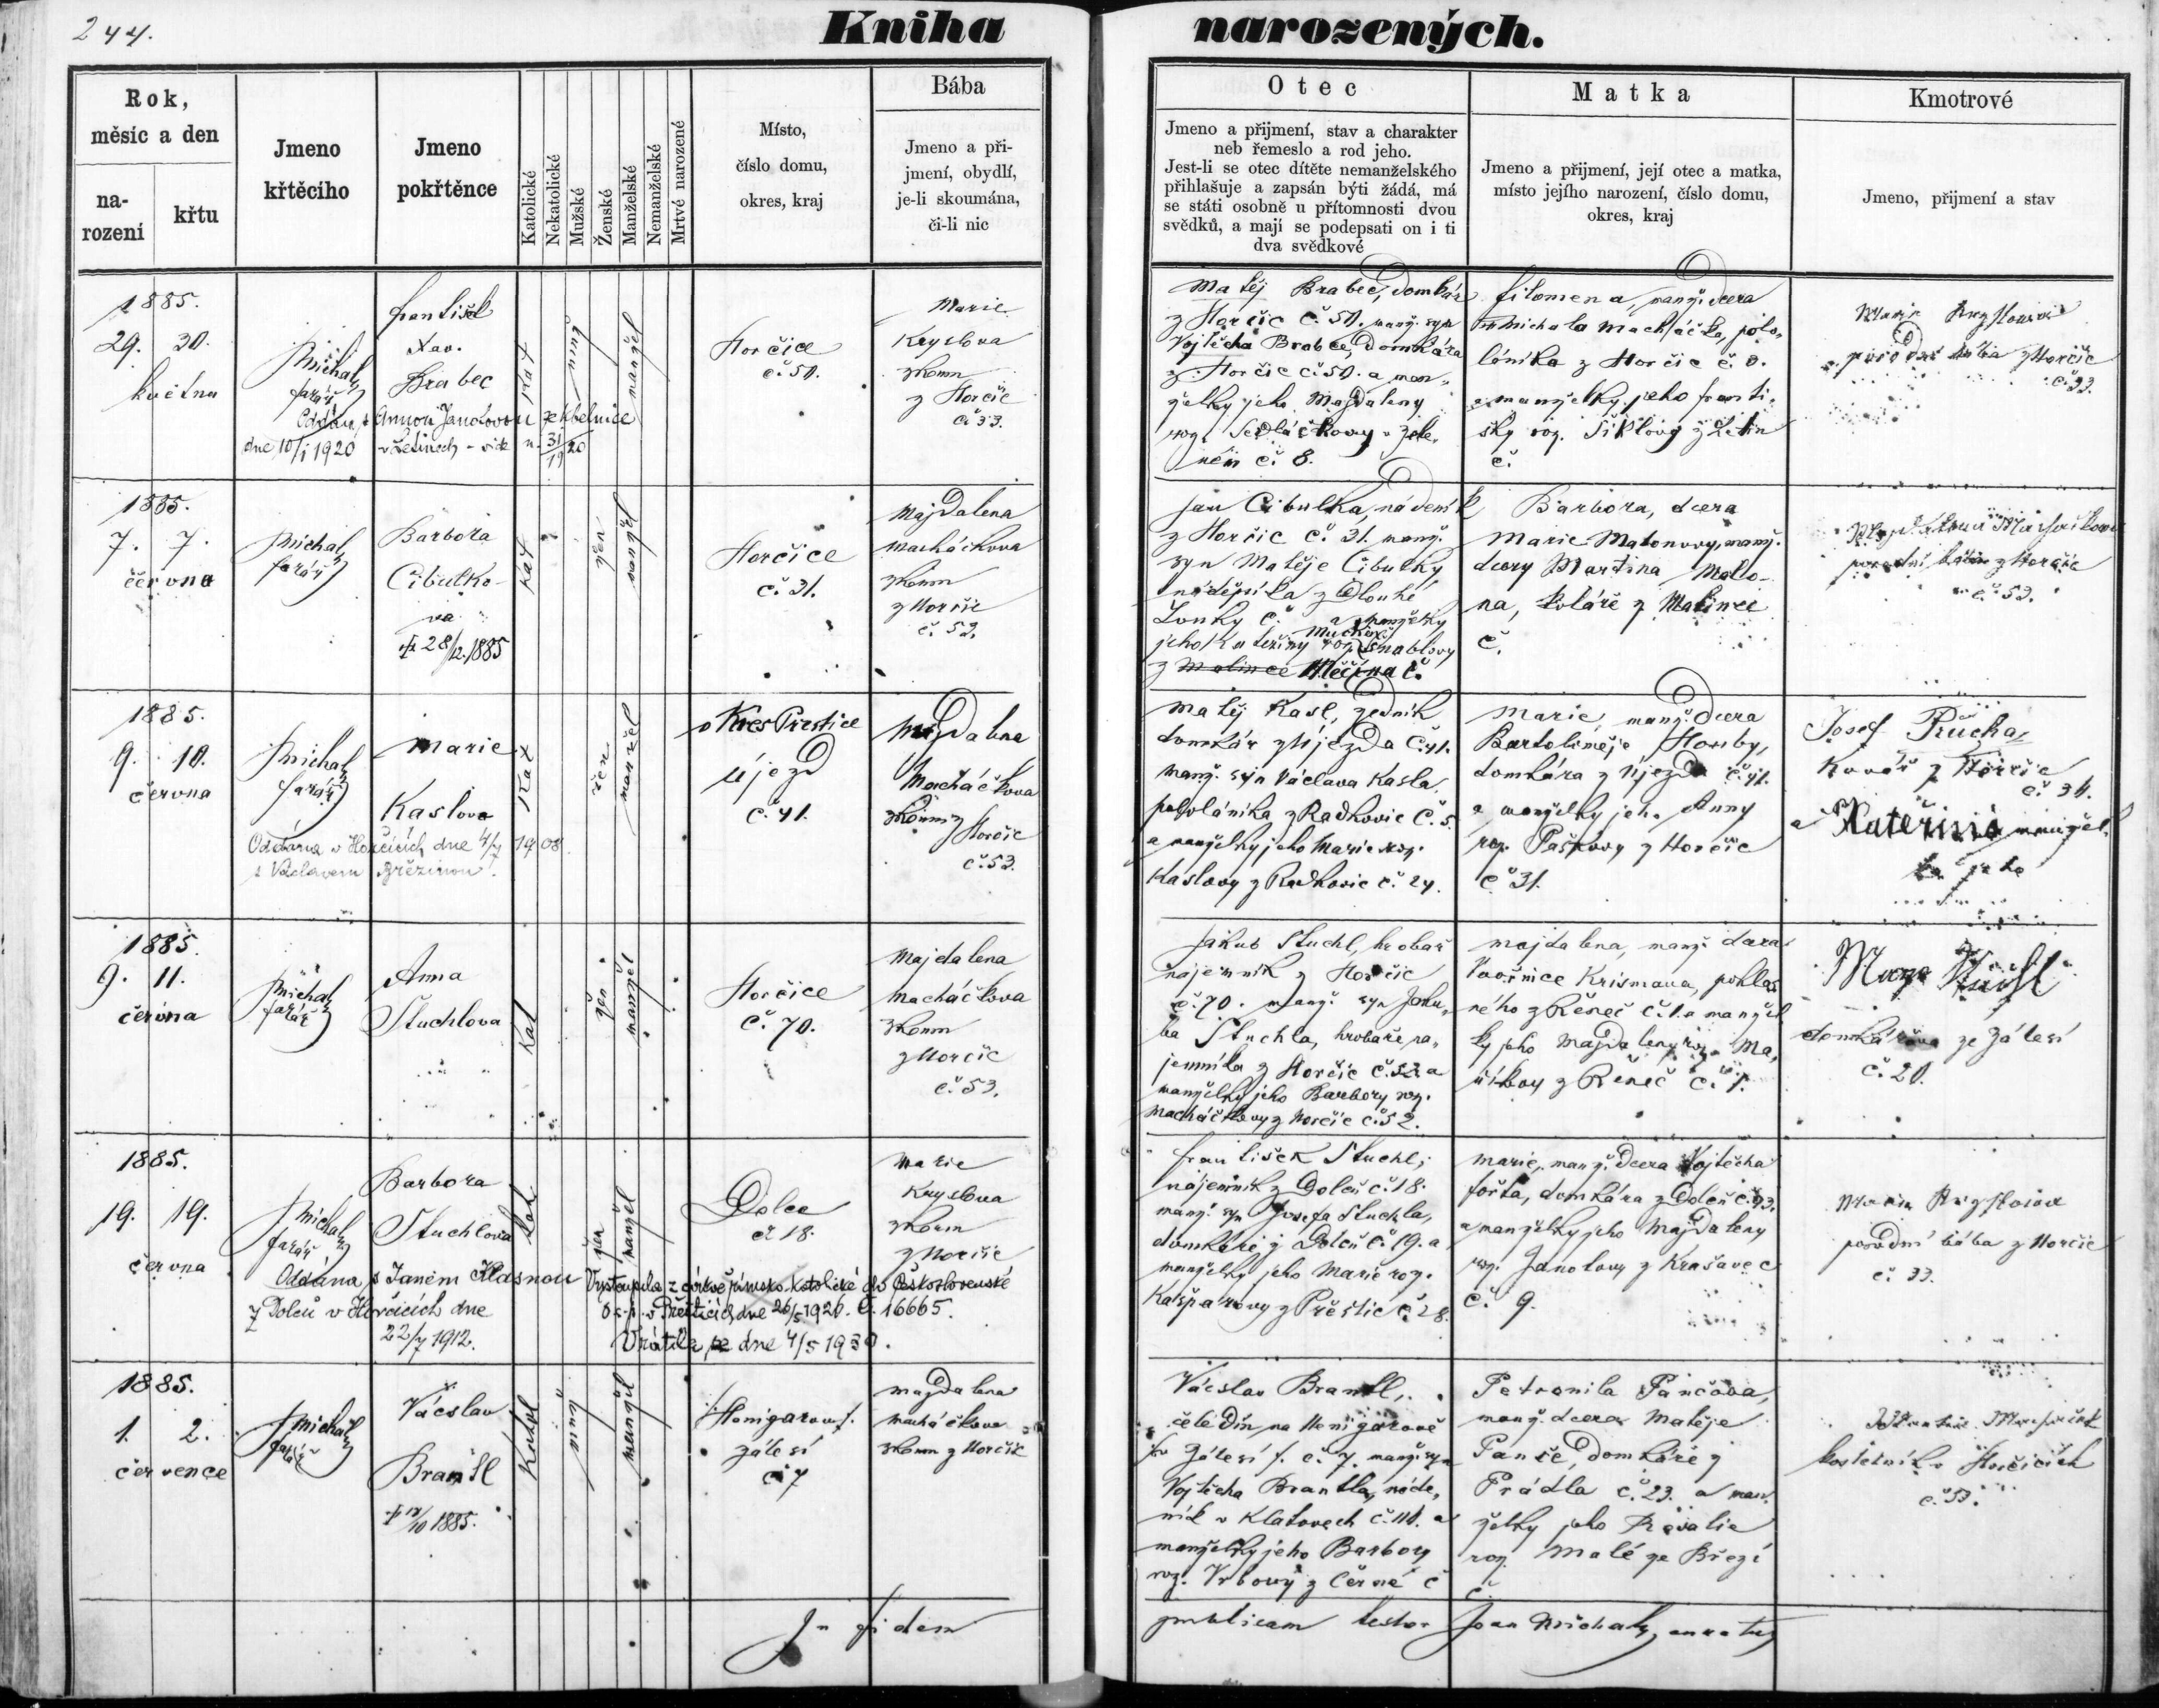 244.
Kniha narozených.
Rok,
měsíc a den
na-
rození
křtu
Jmeno
křtěcího
Jmeno
pokřtěnce
Katolické
Nekatolické
Mužské
Ženské
Manželské
Nemanželské
Mrtvé narozené
Místo,
číslo domu,
okres, kraj
Bába
Jmeno a při-
jmení, obydlí,
je-li skoumána,
či-li nic
Otec
Jmeno a přijmení, stav a charakter
neb řemeslo a rod jeho.
Jest-li se otec dítěte nemanželského
přihlašuje a zapsán býti žádá, má
se státi osobně u přítomnosti dvou
svědků, a mají se podepsati on i ti
dva svědkové
Matka
Jmeno a přijmení, její otec a matka,
místo jejího narození, číslo domu,
okres, kraj
Kmotrové
Jmeno, přijmení a stav
1885.
29. 30.
května
Michal
farář
František
Xav.
Brabec
kat
manžel
Oddán s Annou Janotovou ze Kbelnice
dne 10/I 1920 v Letinech
Horčice
č. 50.
Marie
Kryslova
zkoum
z Horčic
č 33.
Matěj Brabec, domkář
z Horčic č. 50. manž. syn
Vojtěcha Brabce, domkáře
z Horčic č. 50. a man-
želky jeho Magdaleny
roz. Sedláčkovy z Zele-
ném č. 8.
Filomena, manž. dcera
Michala Macháčka, polo-
láníka z Horčic č. 8.
a manželky jeho Franti-
šky roz. Šiklovy z Letin
č.
z Horčic
č. 33.
1885.
7. 7.
června
Michal
farář
Barbora
Cibulko-
va
† 28/12. 1885
kat
žen
manžel
Horčice
č. 31.
Majdalena
Macháčkova
zkoum
z Horčic
č. 53.
Jan Cibulka, nádeník
z Horčic č. 31. manž.
syn Matěje Cibulky
nádeníka z Dlouhé
Louky č. a manželky
jeho Kateřiny roz.
z Malinec Měčína č.
Barbora, dcera
Marie Matonovy, manž.
dcery Martina Mato-
na, koláře z Malinec
č.
z Horčic
č. 53.
1885.
9. 10.
června
Michal
farář
Marie
Kaslova
Kat
žen
manžel
Oddána v Horčicích dne 4/7 1908
s Václavem Březinou.
okres Přestice
Újezd
č. 41.
Majdalena
Macháčkova
zkoum z
Horčic
č. 53.
Matěj Kasl, zedník
domkář z Újezda č. 41.
manž. syn Václava Kasla,
pololáníka z Radkovic č. 5.
a manželky jeho Marie roz.
Kaslovy z Radkovic č. 24.
Marie, manž. dcera
Bartoloměje Houby,
domkáře z Újezda č. 41.
a manželky jeho Anny
roz. Paškovy z Horčic
č 31.
Josef Průcha,
Kovář z Horčic
č. 34.
a Kateřina manžel.
ka jeho
1885.
9. 11.
června
Michal
farář
Anna
Stuchlova
kat
žen
manžel
Horčice
č. 70.
Majdalena
Macháčkova
zkoum
z Horčic
č. 53.
Jakub Stuchl, hrobař
nájemník z Horčic
č. 70. manž. syn Jaku-
ba Stuchla, hrobaře na-
jemníka z Horčic č. 52 a
manželky jeho Barbory roz.
Macháčkovy z Horčic č. 52.
Majdalena, manž. dcera
Vavřince Krismana, pohlas-
ného z Řeneč č. 1. a manžel
ky jeho Majdaleny roz. Ma-
z Řeneč č. 1.
ze Zálesí
č. 20.
1885.
19. 19.
června
Michal
farář
Barbora
Stuchlova
kat
žen
manžel
Oddána s Janem Hlasnou
z Dolců v Horčicích dne
22/7 1912.
Vystoupila z církve římsko-katolické do československé
v Přešticích dne 26/5 1920. č. 16665.
Vrátila se dne 4/5 1930.
Dolce
č 18.
Marie
Kryslova
zkoum
z Horčic
František Stuchl,
nájemník z Dolců č. 18.
manž. syn Josefa Stuchla,
domkáře z Dolců č. 19. a
manželky jeho Marie roz.
Kašparovy z Přestic č. 28.
Marie, manž. dcera Vojtěcha
Fořta, domkáře z Dolců č. 93.
a manželky jeho Majdaleny
roz. Janotovy z Krašavec
č. 9.
porodní bába z Horčic
č. 33.
1885.
1. 2.
července
Michal
farář
Vácslav
Brantl
† 10/10 1885.
Kathol
manžel
Zálesí
č 7
Magdalena
Macháčkova
zkoum z Horčic
Vácslav Brantl,
čeledín na Honigarově
v Zálesí f. č. 7. manž. syn
Vojtěcha Brantla, náde-
ník v Klatovech č. 110. a
manželky jeho Barbory
roz. Vrbovy z Černé č
Petronila Pančova,
manž. dcera Matěje
Panče, domkáře z
Prádla č. 23. a man-
želky jeho Rosalie
roz. Malé ze Březí
č.
kostelník v Horčicích
č. 53.
In fidem
publicam testor Joan Michal, curatus